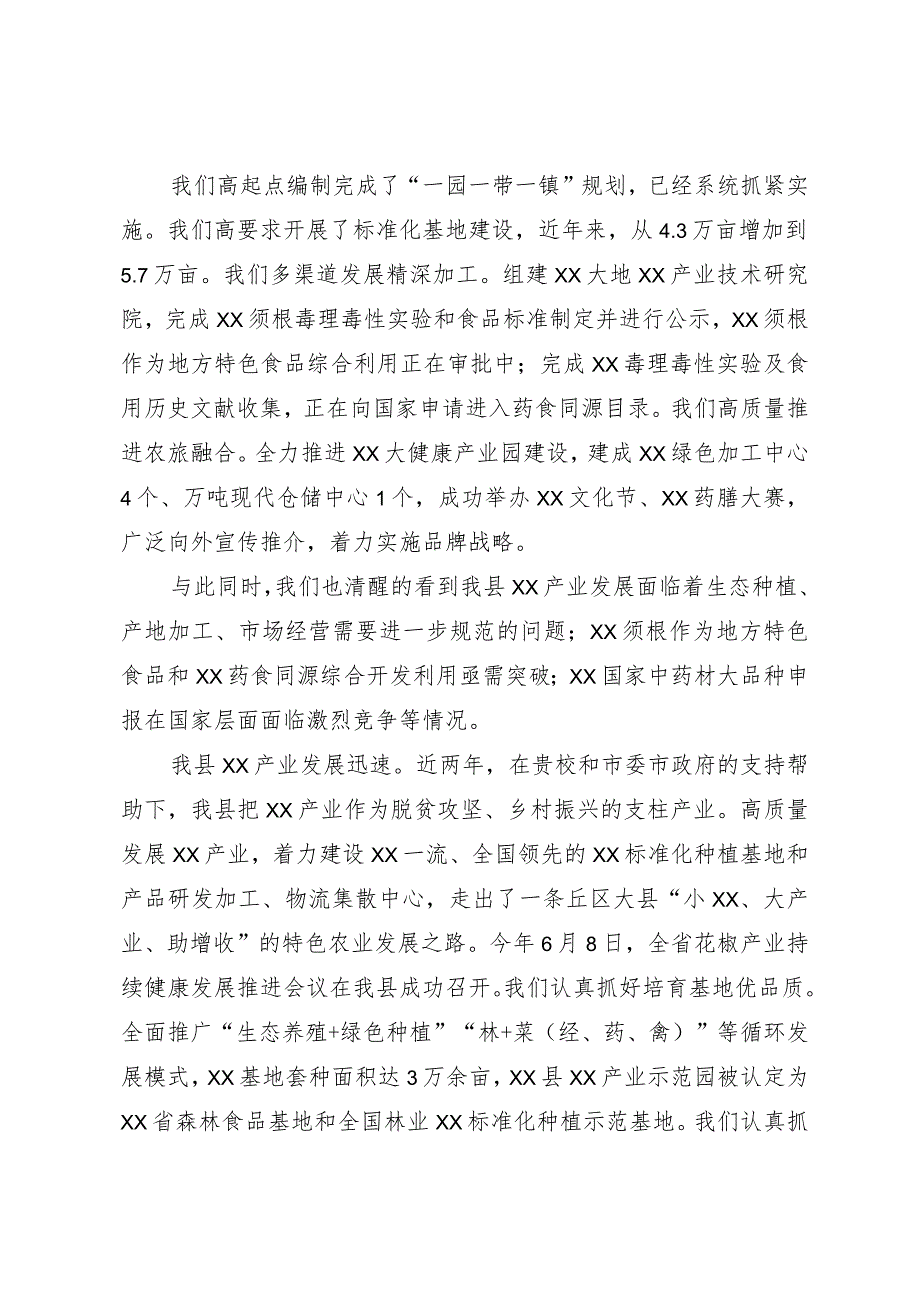 我们高起点编制完成了“一园一带一镇”规划，已经系统抓紧实
施。我们高要求开展了标准化基地建设，近年来，从 4.3 万亩增加到
5.7 万亩。我们多渠道发展精深加工。组建 XX 大地 XX 产业技术研究
院，完成 XX 须根毒理毒性实验和食品标准制定并进行公示，XX 须根
作为地方特色食品综合利用正在审批中；完成 XX 毒理毒性实验及食
用历史文献收集，正在向国家申请进入药食同源目录。我们高质量推
进农旅融合。全力推进 XX 大健康产业园建设，建成 XX 绿色加工中心
4 个、万吨现代仓储中心 1 个，成功举办 XX 文化节、XX 药膳大赛，
广泛向外宣传推介，着力实施品牌战略。
与此同时，我们也清醒的看到我县 XX 产业发展面临着生态种植、
产地加工、市场经营需要进一步规范的问题；XX 须根作为地方特色
食品和 XX 药食同源综合开发利用亟需突破；XX 国家中药材大品种申
报在国家层面面临激烈竞争等情况。
我县 XX 产业发展迅速。近两年，在贵校和市委市政府的支持帮
助下，我县把 XX 产业作为脱贫攻坚、乡村振兴的支柱产业。高质量
发展 XX 产业，着力建设 XX 一流、全国领先的 XX 标准化种植基地和
产品研发加工、物流集散中心，走出了一条丘区大县“小 XX、大产
业、助增收”的特色农业发展之路。今年 6 月 8 日，全省花椒产业持
续健康发展推进会议在我县成功召开。我们认真抓好培育基地优品质。
全面推广“生态养殖+绿色种植”“林+菜（经、药、禽）”等循环发
展模式，XX 基地套种面积达 3 万余亩，XX 县 XX 产业示范园被认定为
XX 省森林食品基地和全国林业 XX 标准化种植示范基地。我们认真抓